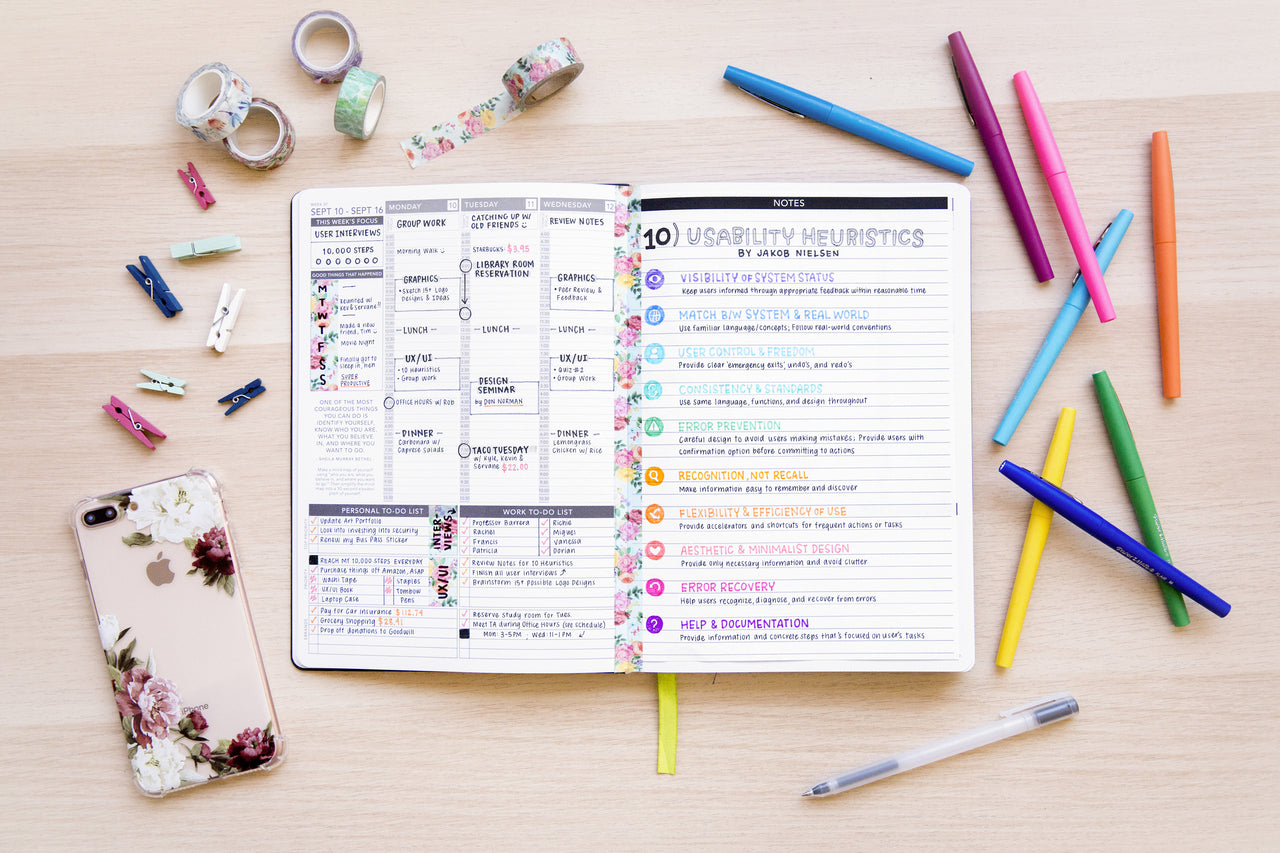 WEEK 37
SEPT 10 - SEPT 16
THIS WEEK'S FOCUS
USER INTERVIEWS
10,000 STEPS
GOOD THINGS THAT HAPPENED
M
T
W
T
F
S
S
Reunited w/
Kev & Servane!!
Made a new
friend, Tim
Movie Night
Finally got to
sleep in, heh
SUPER
PRODUCTIVE
ONE OF THE MOST
COURAGEOUS THINGS
YOU CAN DO IS
IDENTIFY YOURSELF,
KNOW WHO YOU ARE,
WHAT YOU BELIEVE
IN, AND WHERE
YOU WANT TO GO.
SHEILA MURRAY BETHEL
MONDAY 10
GROUP WORK
Morning Walk
GRAPHICS
• Sketch 15+ Logo
Designs & Ideas
- LUNCH -
UX/UI
• 10 Heuristics
• Group Work
OFFICE HOURS w/ Rob
- DINNER -
Carbonara w/
Caprese Salads
TUESDAY 11
CATCHING UP W/
OLD FRIENDS
STARBUCKS: $3.95
LIBRARY ROOM
RESERVATION
- LUNCH -
DESIGN
SEMINAR
by DON NORMAN
TACO TUESDAY
w/ Kyle, Kevin &
Servane $22.00
WEDNESDAY 12
REVIEW NOTES
GRAPHICS
• Peer Review &
Feedback
- LUNCH -
UX/UI
• Quiz #2
• Group Work
- DINNER -
Lemongrass
Chicken w/ Rice
PERSONAL TO-DO LIST
Update Art Portfolio
Look into investing into security
Renew my Bus Pass Sticker
REACH MY 10,000 STEPS EVERYDAY
Purchase things off Amazon, ASAP
Washi Tape
Staples
UX/UI Book
Tombow
Laptop Case
Pens
Pay for Car Insurance $112.74
Grocery Shopping $28.41
Drop off donations to Goodwill
INTER-
VIEWS
UX/UI
WORK TO-DO LIST
Professor Barrera
Richie
Rachel
Miguel
Francis
Vanessa
Patricia
Dorian
Review Notes for 10 Heuristics
Finish all user interviews
Brainstorm 15+ possible Logo Designs
Reserve study room for Tues
Meet TA during Office Hours (see schedule)
Mon: 3-5PM, Wed: 11-1PM
NOTES
10) USABILITY HEURISTICS
BY JAKOB NIELSEN
VISIBILITY OF SYSTEM STATUS
Keep users informed through appropriate feedback within reasonable time
MATCH B/W SYSTEM & REAL WORLD
Use familiar language/concepts; Follow real-world conventions
USER CONTROL & FREEDOM
Provide clear 'emergency exits', undo's, and redo's
CONSISTENCY & STANDARDS
Use same language, functions, and design throughout
ERROR PREVENTION
Careful design to avoid users making mistakes; Provide users with
confirmation option before committing to actions
RECOGNITION, NOT RECALL
Make information easy to remember and discover
FLEXIBILITY & EFFICIENCY OF USE
Provide accelerators and shortcuts for frequent actions or tasks
AESTHETIC & MINIMALIST DESIGN
Provide only necessary information and avoid clutter
ERROR RECOVERY
Help users recognize, diagnose, and recover from errors
HELP & DOCUMENTATION
Provide information and concrete steps that's focused on user's tasks
iPhone